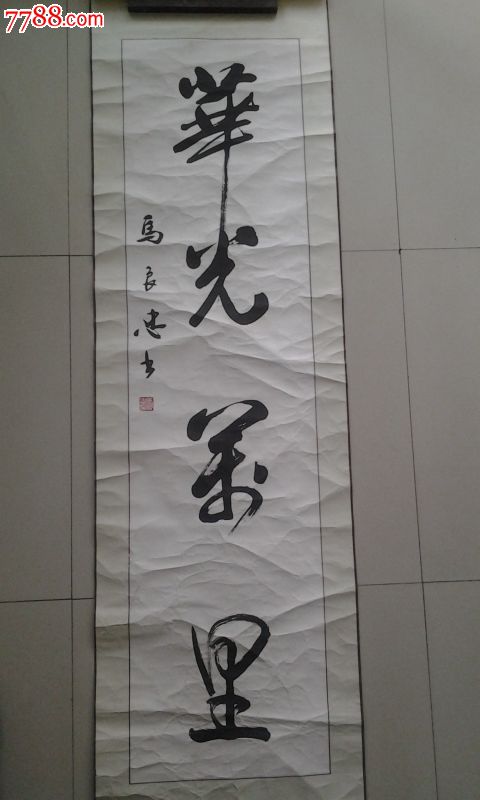 7788.com
華光萬里
馬良忠书